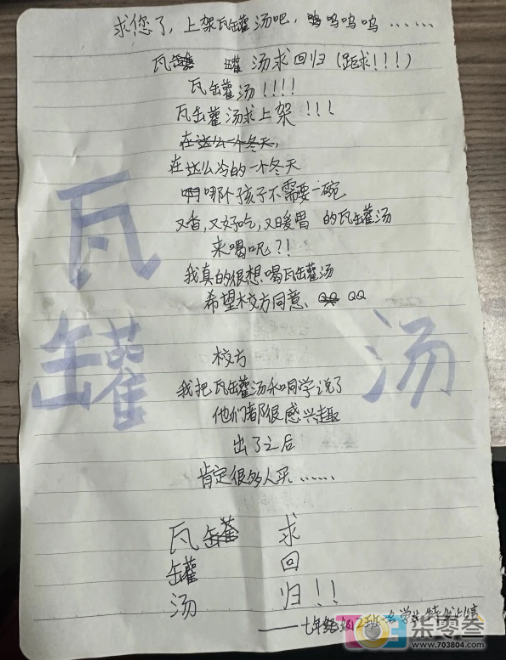 求您了，上架瓦罐汤吧，呜呜呜呜……
瓦罐 罐汤求回归（跪求!!!）
瓦缶罐汤!!!!
瓦缶罐汤求上架!!!
在这么一个冬天，
在这么冷的一个冬天
啊哪个孩子不需要一碗
又香，又好吃，又暖胃 的瓦缶罐汤
来喝呢?!
我真的很想喝瓦缶罐汤
希望校方同意、QQ QQ
校方
我把瓦缶罐汤和同学说了
他们都很感兴趣
出了之后
肯定很多人买……
瓦缶罐 求
罐 回
汤 归!!
——七年级
瓦
罐
汤
柒零叁
www.703804.com